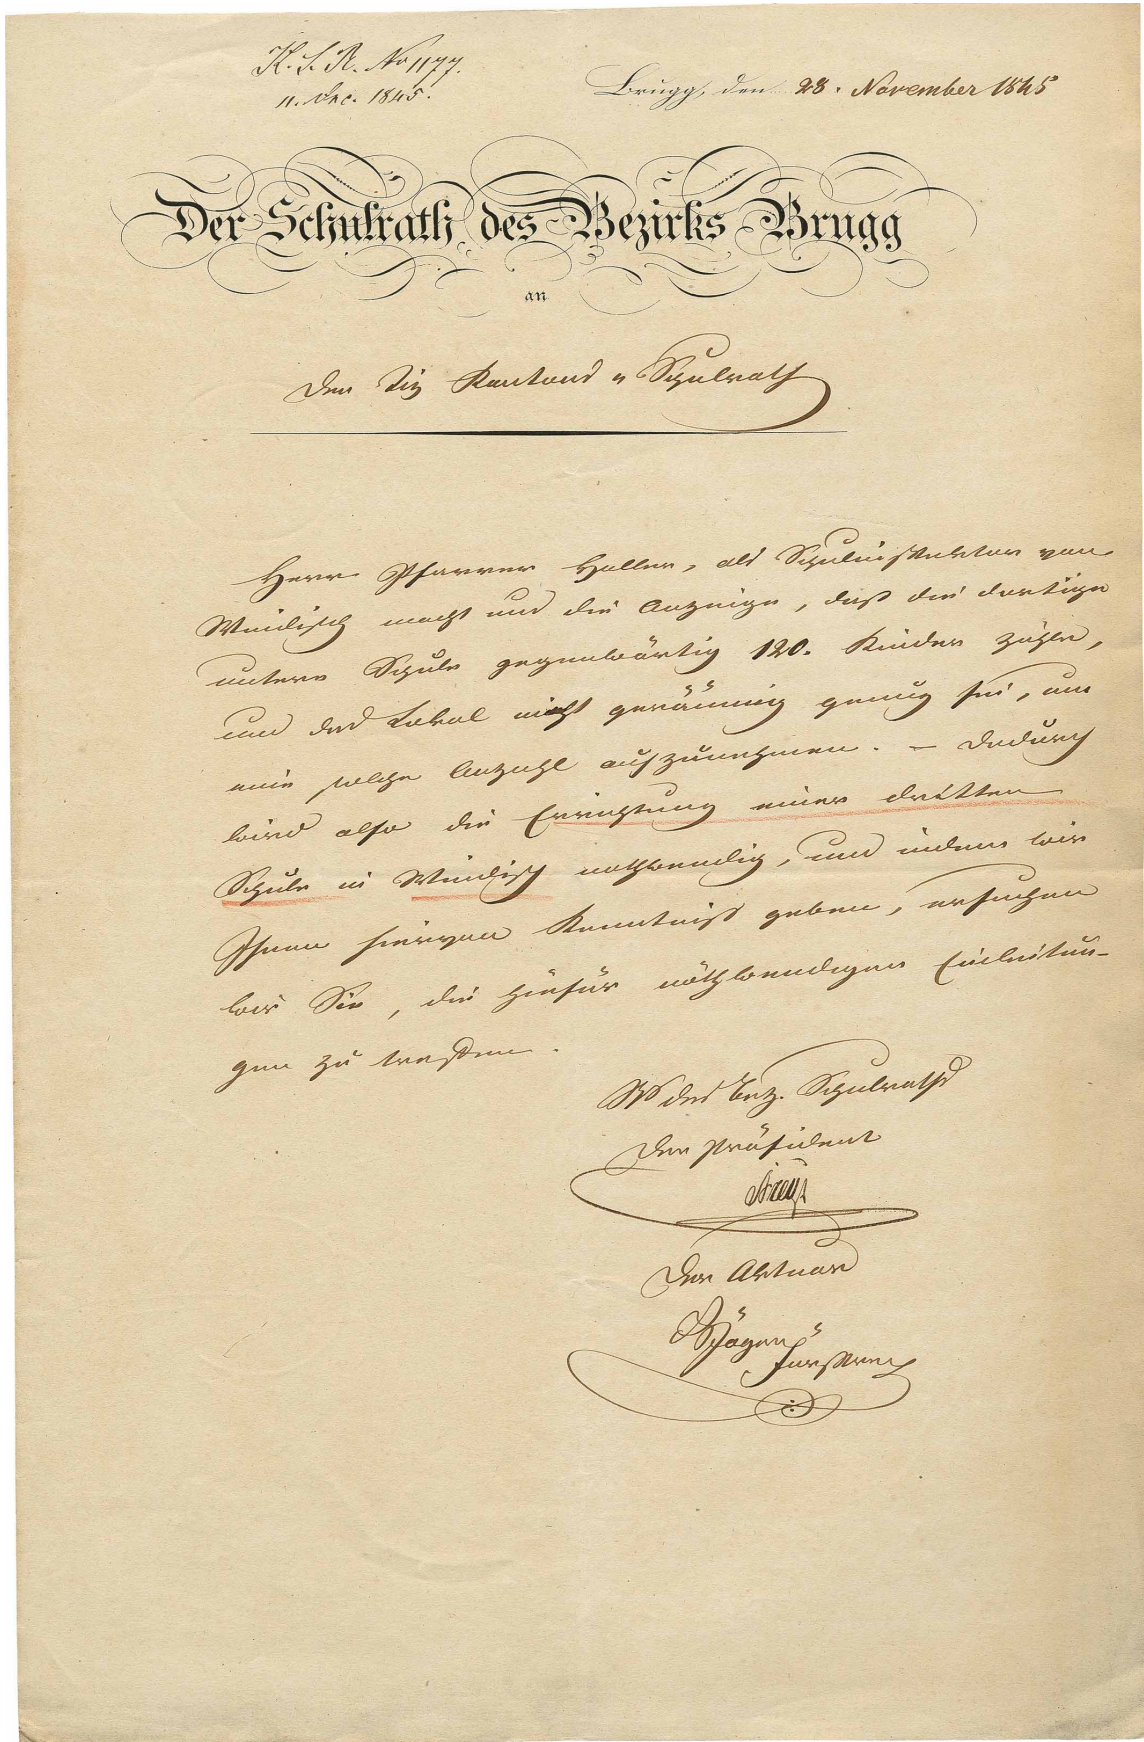 K. S. R. No 1177.
11. Dec. 1845.
Brugg, den 28. November 1845
Der Schulrath des Bezirks Brugg
an
Den Tit Kantons " Schulrath
Herr Pfarrer Haller, als Schulinspektor von
Windisch macht uns die Anzeige, daß die dortige
untere Schule gegenwärtig 120. Kinder zähle,
und das Lokal nicht geräumig genug sei, um
eine solche Anzahl aufzunehmen. – Dadurch
wird also die Errichtung einer dritten
Schule in Windisch nothwendig, und indem wir
Ihnen hiervon Kenntniß geben, ersuchen
wir Sie, die hiefür nöthwendigen Einleitun-
gen zu treffen.
des Bez. Schulraths
Der Präsident
Der Aktuar